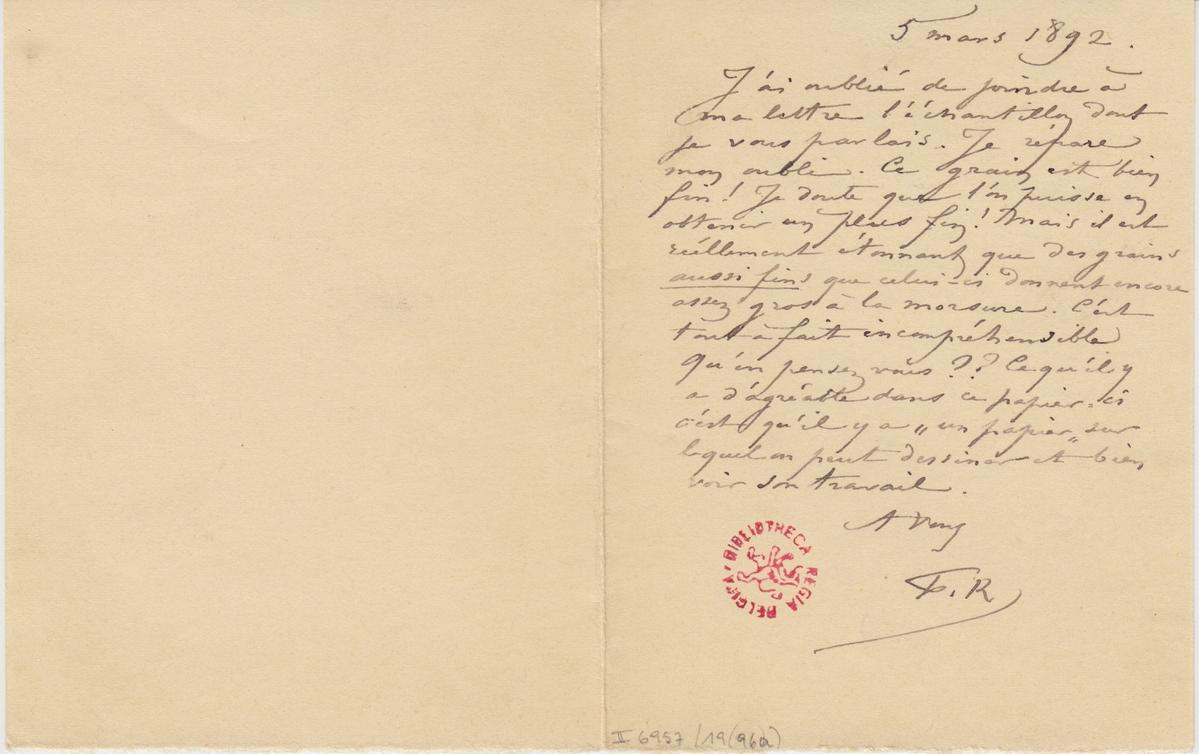 5 mars 1892.
J'ai oublié de joindre à
ma lettre l'échantillon dont
je vous parlais. Je répare
mon oubli. Ce grain est bien
fin! Je doute que l'on puisse en
obtenir un plus fin! Mais il est
réellement étonnant que des grains
aussi fins que celui-ci donnent encore
assez gros à la morsure. C'est
tout à fait incompréhensible
Qu'en pensez vous?? Ce qu'il y
a d'agréable dans ce papier-ci
c'est qu'il y a „un papier„ sur
lequel on peut dessiner et bien
voir son travail.
A Vous
F. R
BIBLIOTHECA REGIA BELGICA
II 6957 /19(96a)